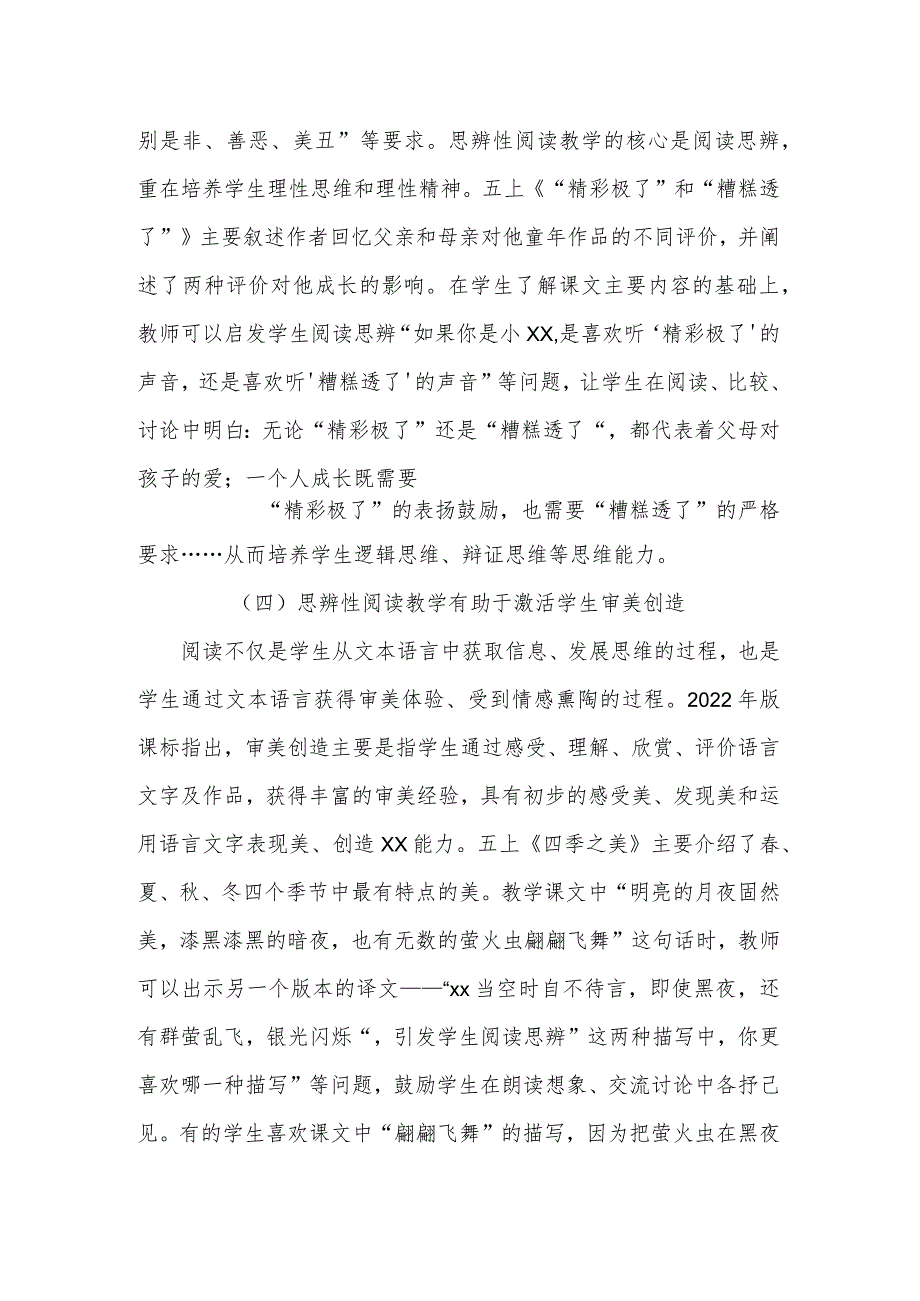 别是非、善恶、美丑”等要求。思辨性阅读教学的核心是阅读思辨，
重在培养学生理性思维和理性精神。五上《“精彩极了”和“糟糕透
了”》主要叙述作者回忆父亲和母亲对他童年作品的不同评价，并阐
述了两种评价对他成长的影响。在学生了解课文主要内容的基础上，
教师可以启发学生阅读思辨“如果你是小XX,是喜欢听‘精彩极了'的
声音，还是喜欢听'糟糕透了'的声音”等问题，让学生在阅读、比较、
讨论中明白：无论“精彩极了”还是“糟糕透了“，都代表着父母对
孩子的爱；一个人成长既需要
“精彩极了”的表扬鼓励，也需要“糟糕透了”的严格
要求……从而培养学生逻辑思维、辩证思维等思维能力。
（四）思辨性阅读教学有助于激活学生审美创造
阅读不仅是学生从文本语言中获取信息、发展思维的过程，也是
学生通过文本语言获得审美体验、受到情感熏陶的过程。2022年版
课标指出，审美创造主要是指学生通过感受、理解、欣赏、评价语言
文字及作品，获得丰富的审美经验，具有初步的感受美、发现美和运
用语言文字表现美、创造XX能力。五上《四季之美》主要介绍了春、
夏、秋、冬四个季节中最有特点的美。教学课文中“明亮的月夜固然
美，漆黑漆黑的暗夜，也有无数的萤火虫翩翩飞舞”这句话时，教师
可以出示另一个版本的译文——“xx当空时自不待言，即使黑夜，还
有群萤乱飞，银光闪烁“，引发学生阅读思辨”这两种描写中，你更
喜欢哪一种描写”等问题，鼓励学生在朗读想象、交流讨论中各抒己
见。有的学生喜欢课文中“翩翩飞舞”的描写，因为把萤火虫在黑夜